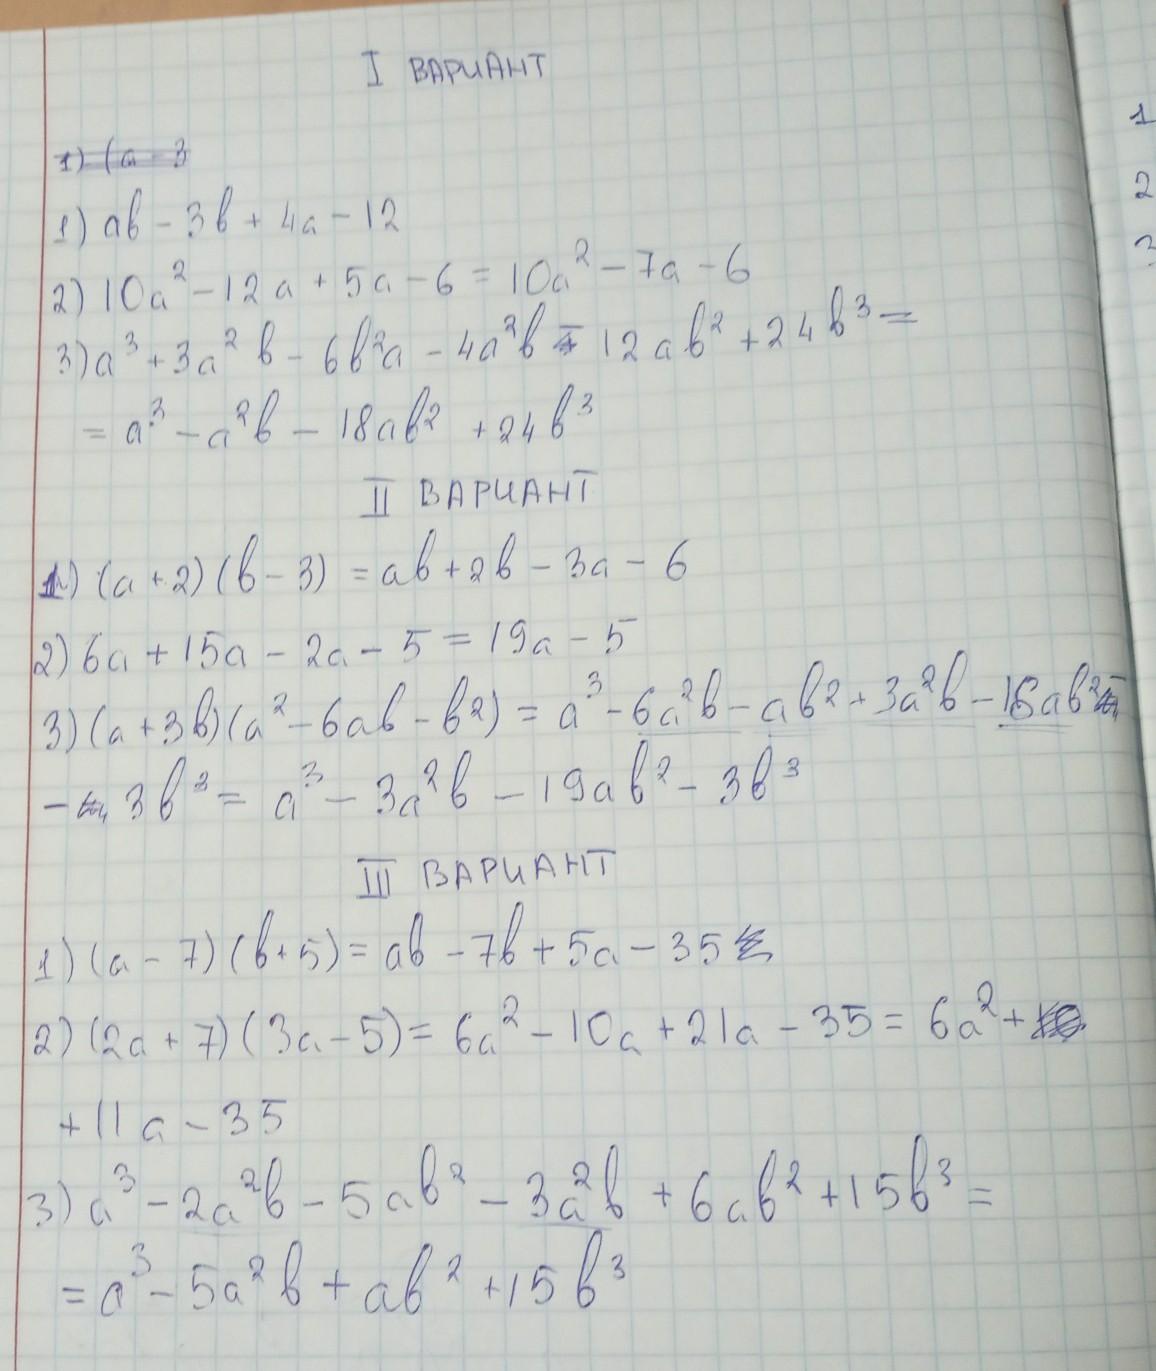 I ВАРИАНТ
1) (a - 3
1) ab - 3b + 4a - 12
2) 10a² - 12a + 5a - 6 = 10a² - 7a - 6
3) a³ + 3a²b - 6b²a - 4a²b - 12ab² + 24b³ =
= a³ - a²b - 18ab² + 24b³
II ВАРИАНТ
1) (a + 2)(b - 3) = ab + 2b - 3a - 6
2) 6a + 15a - 2a - 5 = 19a - 5
3) (a + 3b)(a² - 6ab - b²) = a³ - 6a²b - ab² + 3a²b - 18ab²
- 3b³ = a³ - 3a²b - 19ab² - 3b³
III ВАРИАНТ
1) (a - 7)(b + 5) = ab - 7b + 5a - 35
2) (2a + 7)(3a - 5) = 6a² - 10a + 21a - 35 = 6a² +
+ 11a - 35
3) a³ - 2a²b - 5ab² - 3a²b + 6ab² + 15b³ =
= a³ - 5a²b + ab² + 15b³
1
2
3